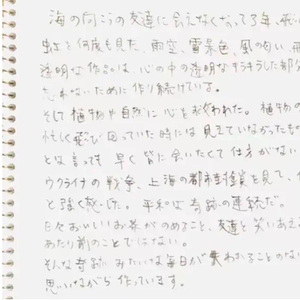 海の向こうの友達に会えなくなって3年、飛
空を何度も見た。雨空、雪景色、風の匂い、
透明な作品は、心の中の透明なキラキラした部分
忘れないために作り続けている。
そして植物や自然に心を救われた。植物の
忙しく飛び回っていた時には見えていなかったもの
とは言っても早く皆に会いたくて仕方がない
ウクライナの戦争、上海の都市封鎖を見て、
と強く感じた。平和は奇跡の連続だ。
日々おいしいお茶がのめること、友達と笑いあえる
あたり前のことではない。
そんな奇跡みたいな毎日が失われることのない
思いながら作っています。